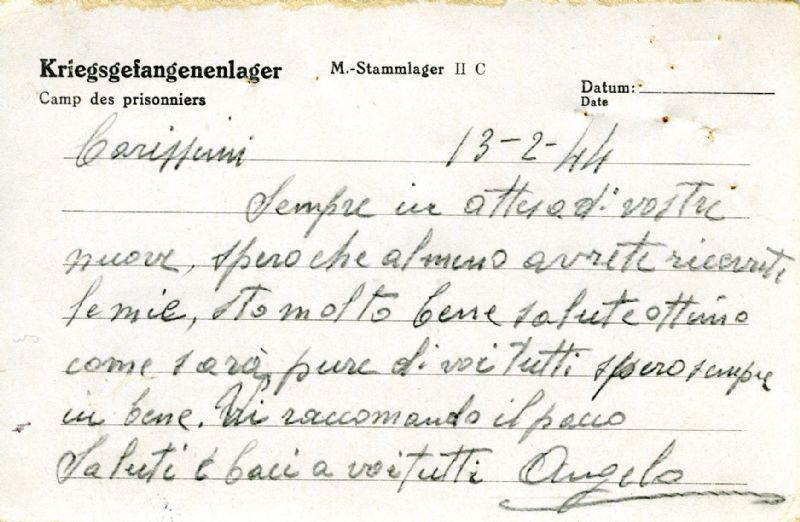 Kriegsgefangenenlager M.-Stammlager II C
Camp des prisonniers
Datum:
Date
Carissimi 13-2-44
Sempre in attesa di vostre
nuove, spero che almeno avrete ricevute
le mie, sto molto bene salute ottima
come sarà pure di voi tutti spero sempre
in bene. Vi raccomando il pacco
Saluti e baci a voi tutti Angelo